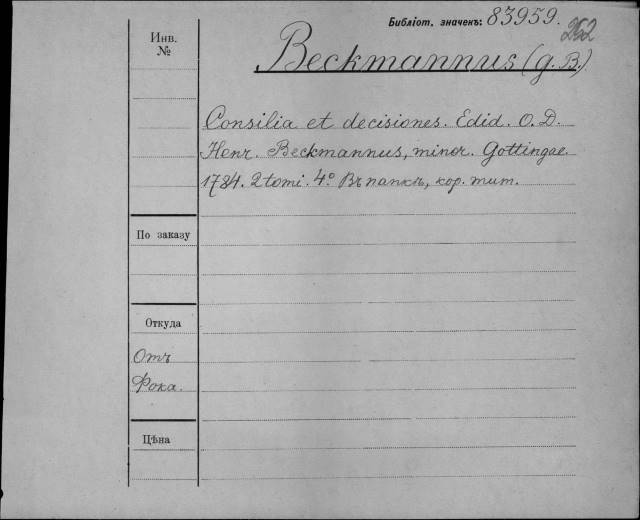 Библіот. значекъ: 83959.
262
Инв. №
Beckmannus (G. B.)
Consilia et decisiones. Edid. O. D.
Henr. Beckmannus, minor. Gottingae.
1784. 2 tomi. 4º Въ папкѣ, кор. тит.
По заказу
Откуда
Отъ
Фока.
Цѣна